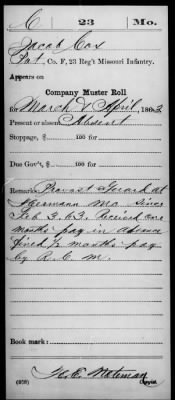 C 23 Mo.
Jacob Cox
Pvt., Co. F, 23 Reg't Missouri Infantry.
Appears on
Company Muster Roll
for March & April, 1863
Present or absent Absent
Stoppage, $ 100 for
Due Gov't, $ 100 for
Remarks: Provost Guard at
Hermann Mo. since
Feb 3. 63. Received one
months pay in advance
fined ½ months pay
by R. C. M.
Book mark:
(858) Copyist.